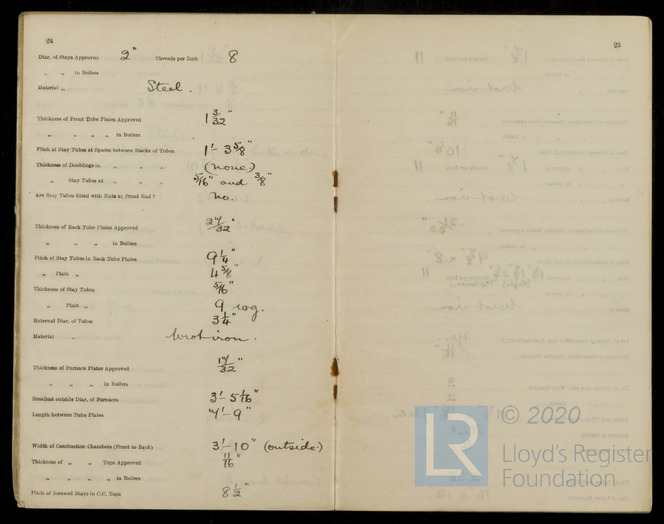 24
Diar. of Stays Approved 2" Threads per Inch 8
„ „ in Boilers
Material „ Steel.
Thickness of Front Tube Plates Approved 1 3/32"
„ „ „ „ in Boilers
Pitch of Stay Tubes at Spaces between Stacks of Tubes 1'- 3 5/8"
Thickness of Doublings to „ „ „ (none.)
„ Stay Tubes at „ „ „ 5/16" and 3/8"
Are Stay Tubes fitted with Nuts at Front End? No.
Thickness of Back Tube Plates Approved
„ „ „ in Boilers
Pitch of Stay Tubes in Back Tube Plates 9 1/4"
„ Plain „ 4 5/8"
Thickness of Stay Tubes 5/16"
„ Plain „ 9 w.g.
External Diar. of Tubes 3 1/4"
Material „ Wrot iron.
Thickness of Furnace Plates Approved
„ „ „ in Boilers
Smallest outside Diar. of Furnaces 3'- 5 1/16"
Length between Tube Plates 7'- 9"
Width of Combustion Chambers (Front to Back) 3'- 10" (outside.)
Thickness of „ „ Tops Approved 11/16"
„ „ „ „ in Boilers
Pitch of Screwed Stays in C.C. Tops 8 1/2"
25
© 2020
LR
Lloyd's Register
Foundation